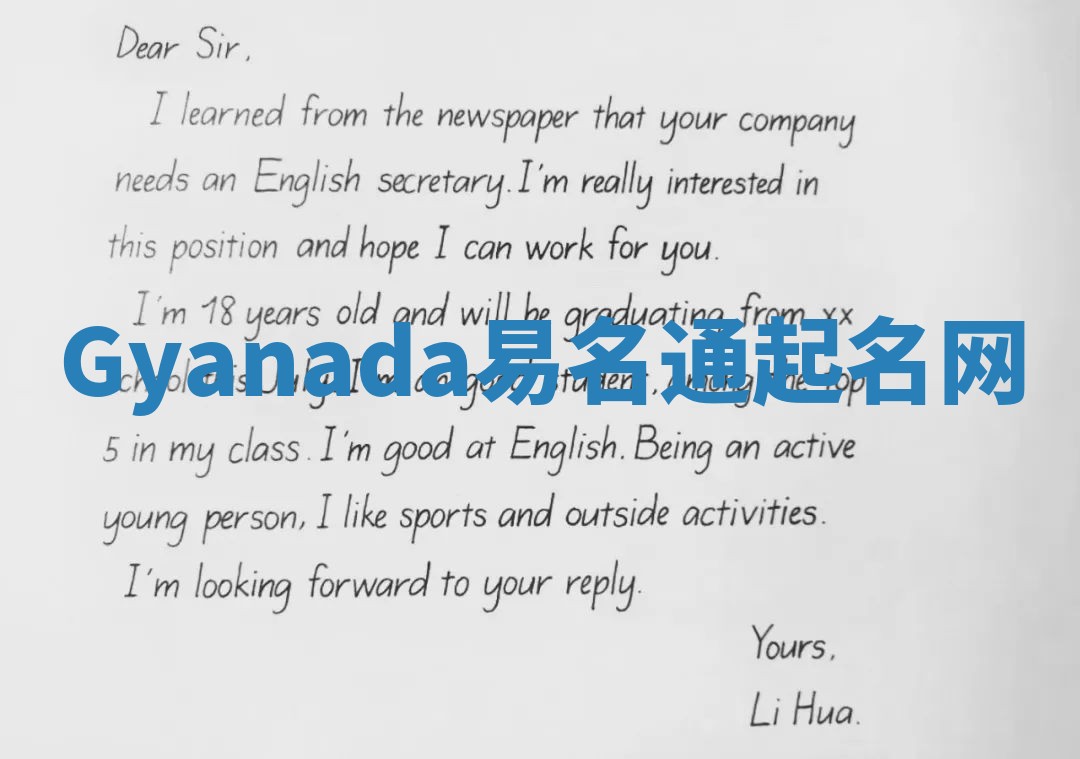 Dear Sir,
I learned from the newspaper that your company
needs an English secretary. I'm really interested in
this position and hope I can work for you.
I'm 18 years old and will be graduating from xx
Gyanada易名通起名网
school this July. I'm a good student, among the top
5 in my class. I'm good at English. Being an active
young person, I like sports and outside activities.
I'm looking forward to your reply.
Yours,
Li Hua.